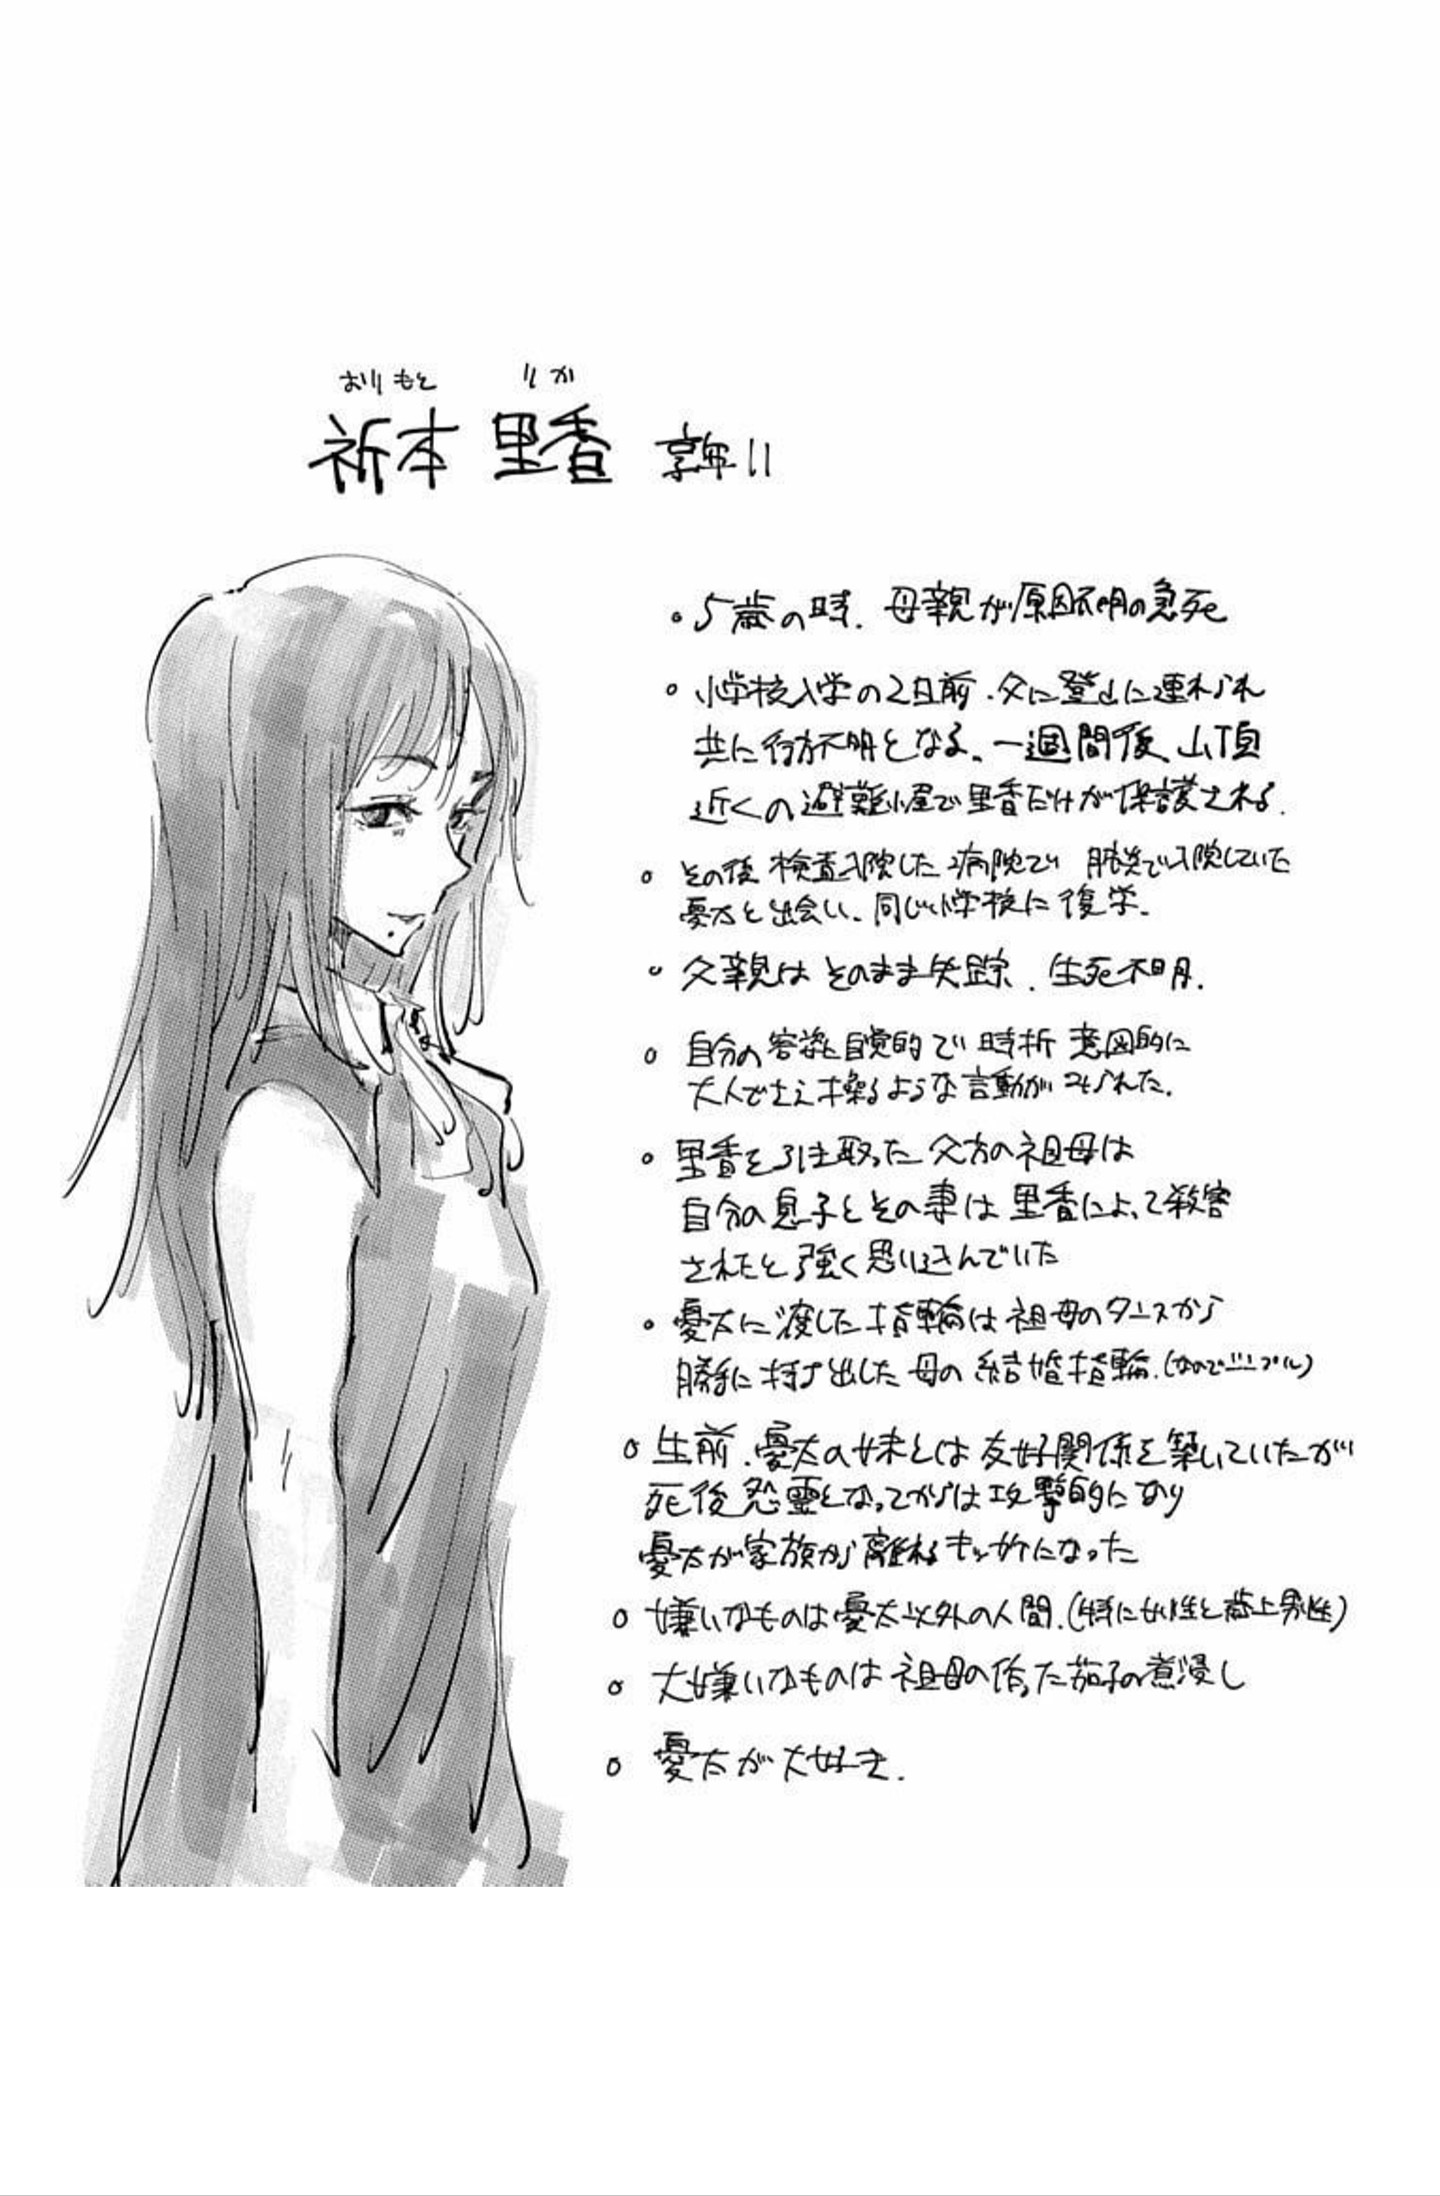 おりもと りか
祈本 里香 享年11
。5歳の時、母親が原因不明の急死
。小学校入学の2日前、父に登山に連れられ
共に行方不明となる。一週間後、山頂
近くの避難小屋で里香だけが保護される。
。その後 検査入院した病院で 肺炎で入院していた
憂太と出会い、同じ小学校に復学。
。父親は そのまま失踪、生死不明。
。自分の容姿に自覚的で 時折 意図的に
大人でさえ操るような言動がみられた。
。里香を引き取った父方の祖母は
自分の息子とその妻は里香によって殺害
されたと強く思い込んでいた
。憂太に渡した指輪は祖母のタンスから
勝手に持ち出した母の結婚指輪。(なのでシンプル)
。生前、憂太の妹とは友好関係を築いていたが
死後 怨霊となってからは攻撃的になり
憂太が家族から離れるキッカケになった
。嫌いなものは憂太以外の人間。(特に女性と歳上男性)
。大嫌いなものは祖母の作った茄子の煮浸し
。憂太が大好き。